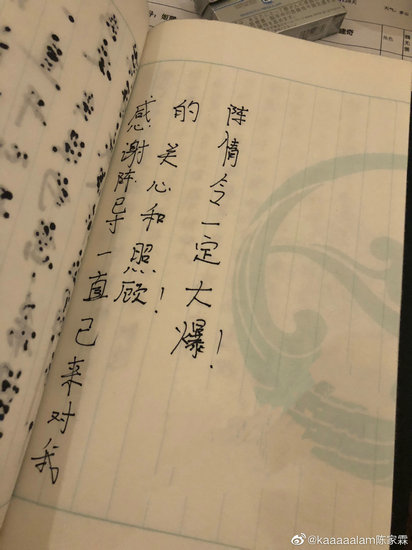 感谢陈导一直己来对我
的关心和照顾！
陈情令一定大爆！
@kaaaaalam陈家霖